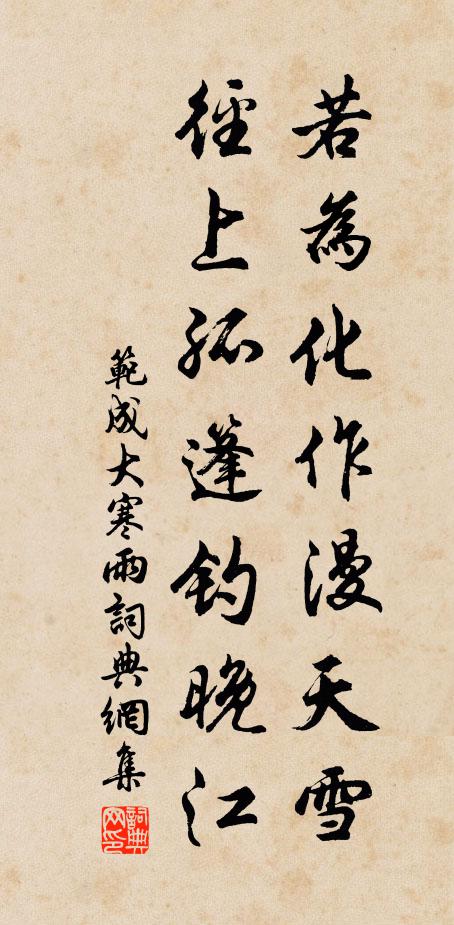 若為化作漫天雪
徑上孤篷釣晚江
範成大寒雨詞典網集
詞典網印